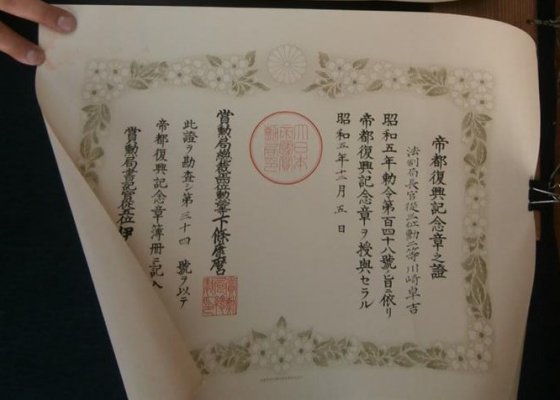 帝都復興記念章之證
法制局長官從三位勲二等川崎卓吉
昭和五年勅令第百四十八號ノ旨ニ依リ
帝都復興記念章ヲ授與セラル
昭和五年十二月五日
大日本帝國賞勲局印
賞勲局總裁 下條康麿
此證ヲ勘査シ第三十四號ヲ以テ
帝都復興記念章ノ簿冊ニ記入
賞勲局書記官 伊